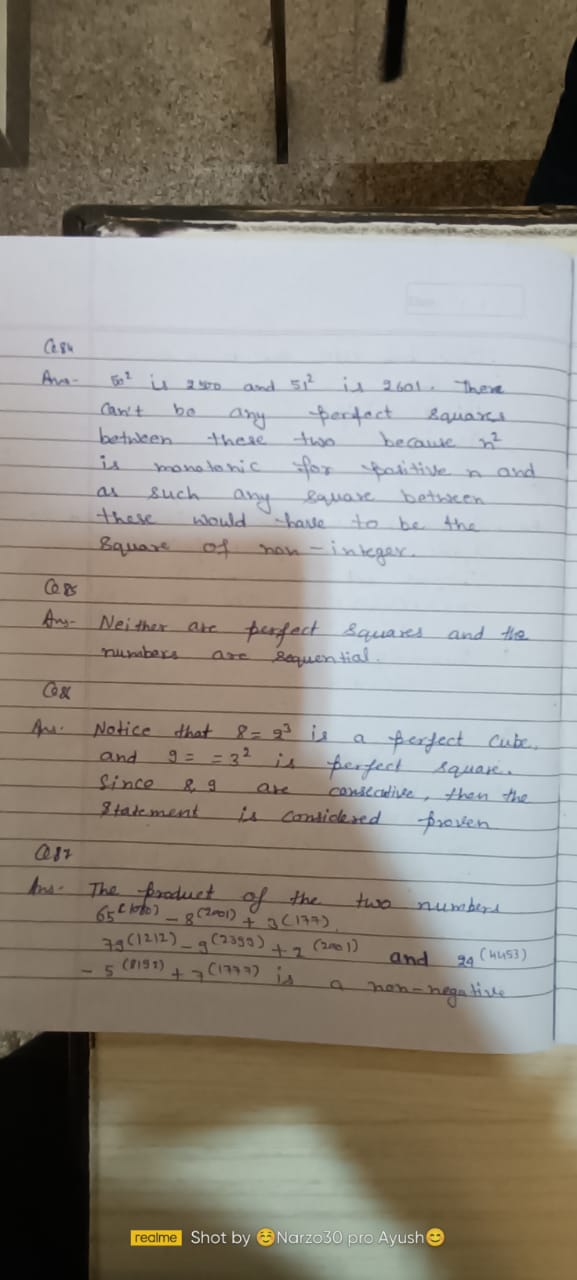 Q84
Ans- 50² is 2500 and 51² is 2601. There
can't be any perfect squares
between these two because n²
is monotonic for positive n and
as such any square between
these would have to be the
square of non-integer.
Q85
Ans- Neither are perfect squares and the
numbers are sequential.
Q86
Ans. Notice that 8 = 2³ is a perfect cube.
and 9 = = 3² is perfect square.
Since 8, 9 are consecutive, then the
Statement is considered proven
Q87
Ans. The product of the two numbers
65^(1000) - 8^(2001) + 3^(177),
79^(1212) - 9^(2399) + 2^(2001) and 24^(4453)
- 5^(8192) + 7^(1777) is a non-negative
realme Shot by 😊Narzo30 pro Ayush😊